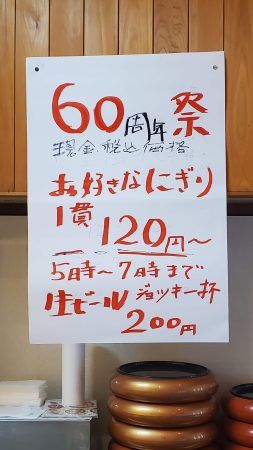 60周年 祭
現金、税込価格
お好きなにぎり
1貫
120円〜
5時〜7時まで
生ビール ジョッキ一杯
200円